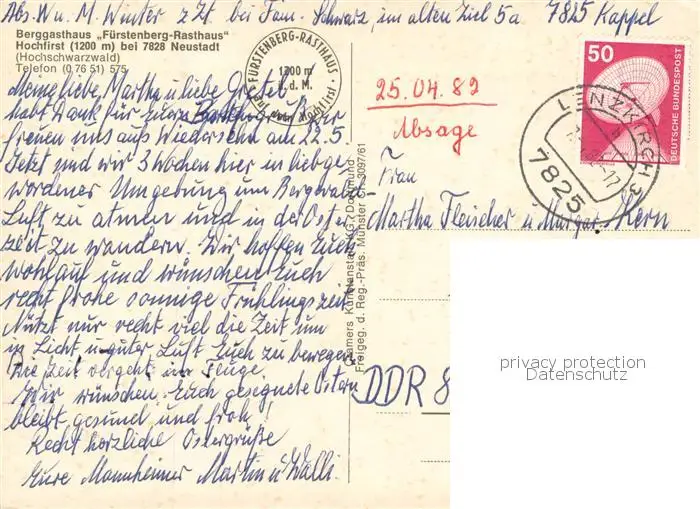 Abs. W. u. M. Winter z. Zt. bei Fam. Schwarz, im alten Ziel 5a 7825 Kappel
Berggasthaus „Fürstenberg-Rasthaus"
Hochfirst (1200 m) bei 7828 Neustadt
(Hochschwarzwald)
Telefon (0 76 51) 575
FÜRSTENBERG-RASTHAUS
1200 m
ü. d. M.
auf dem Hochfirst
Meine liebe Martha u. liebe Gretel
habt Dank für euren Wir
freuen uns aufs Wiedersehn am 22.5.
Jetzt sind wir 3 Wochen hier in liebge-
wordener Umgebung um Bergwald
Luft zu atmen und in der Oster-
zeit zu wandern. Wir hoffen Euch
wohlauf und wünschen Euch
recht frohe sonnige Frühlingszeit
Nützt nur recht viel die Zeit um
in Licht u. guter Luft Euch zu bewegen
Die Zeit vergeht im Fluge.
Wir wünschen Euch gesegnete Ostern
bleibt gesund und froh!
Recht herzliche Ostergrüße
Eure Mannheimer Martin u. Walli.
Cramers Kunstanstalt KG, Dortmund
Freigeg. d. Reg.-Präs. Münster 3097/61
25.04.89
Absage
50
DEUTSCHE BUNDESPOST
LENZKIRCH 3
7825
Frau
Martha Fleischer u. Margar. Kern
DDR 8
privacy protection
Datenschutz